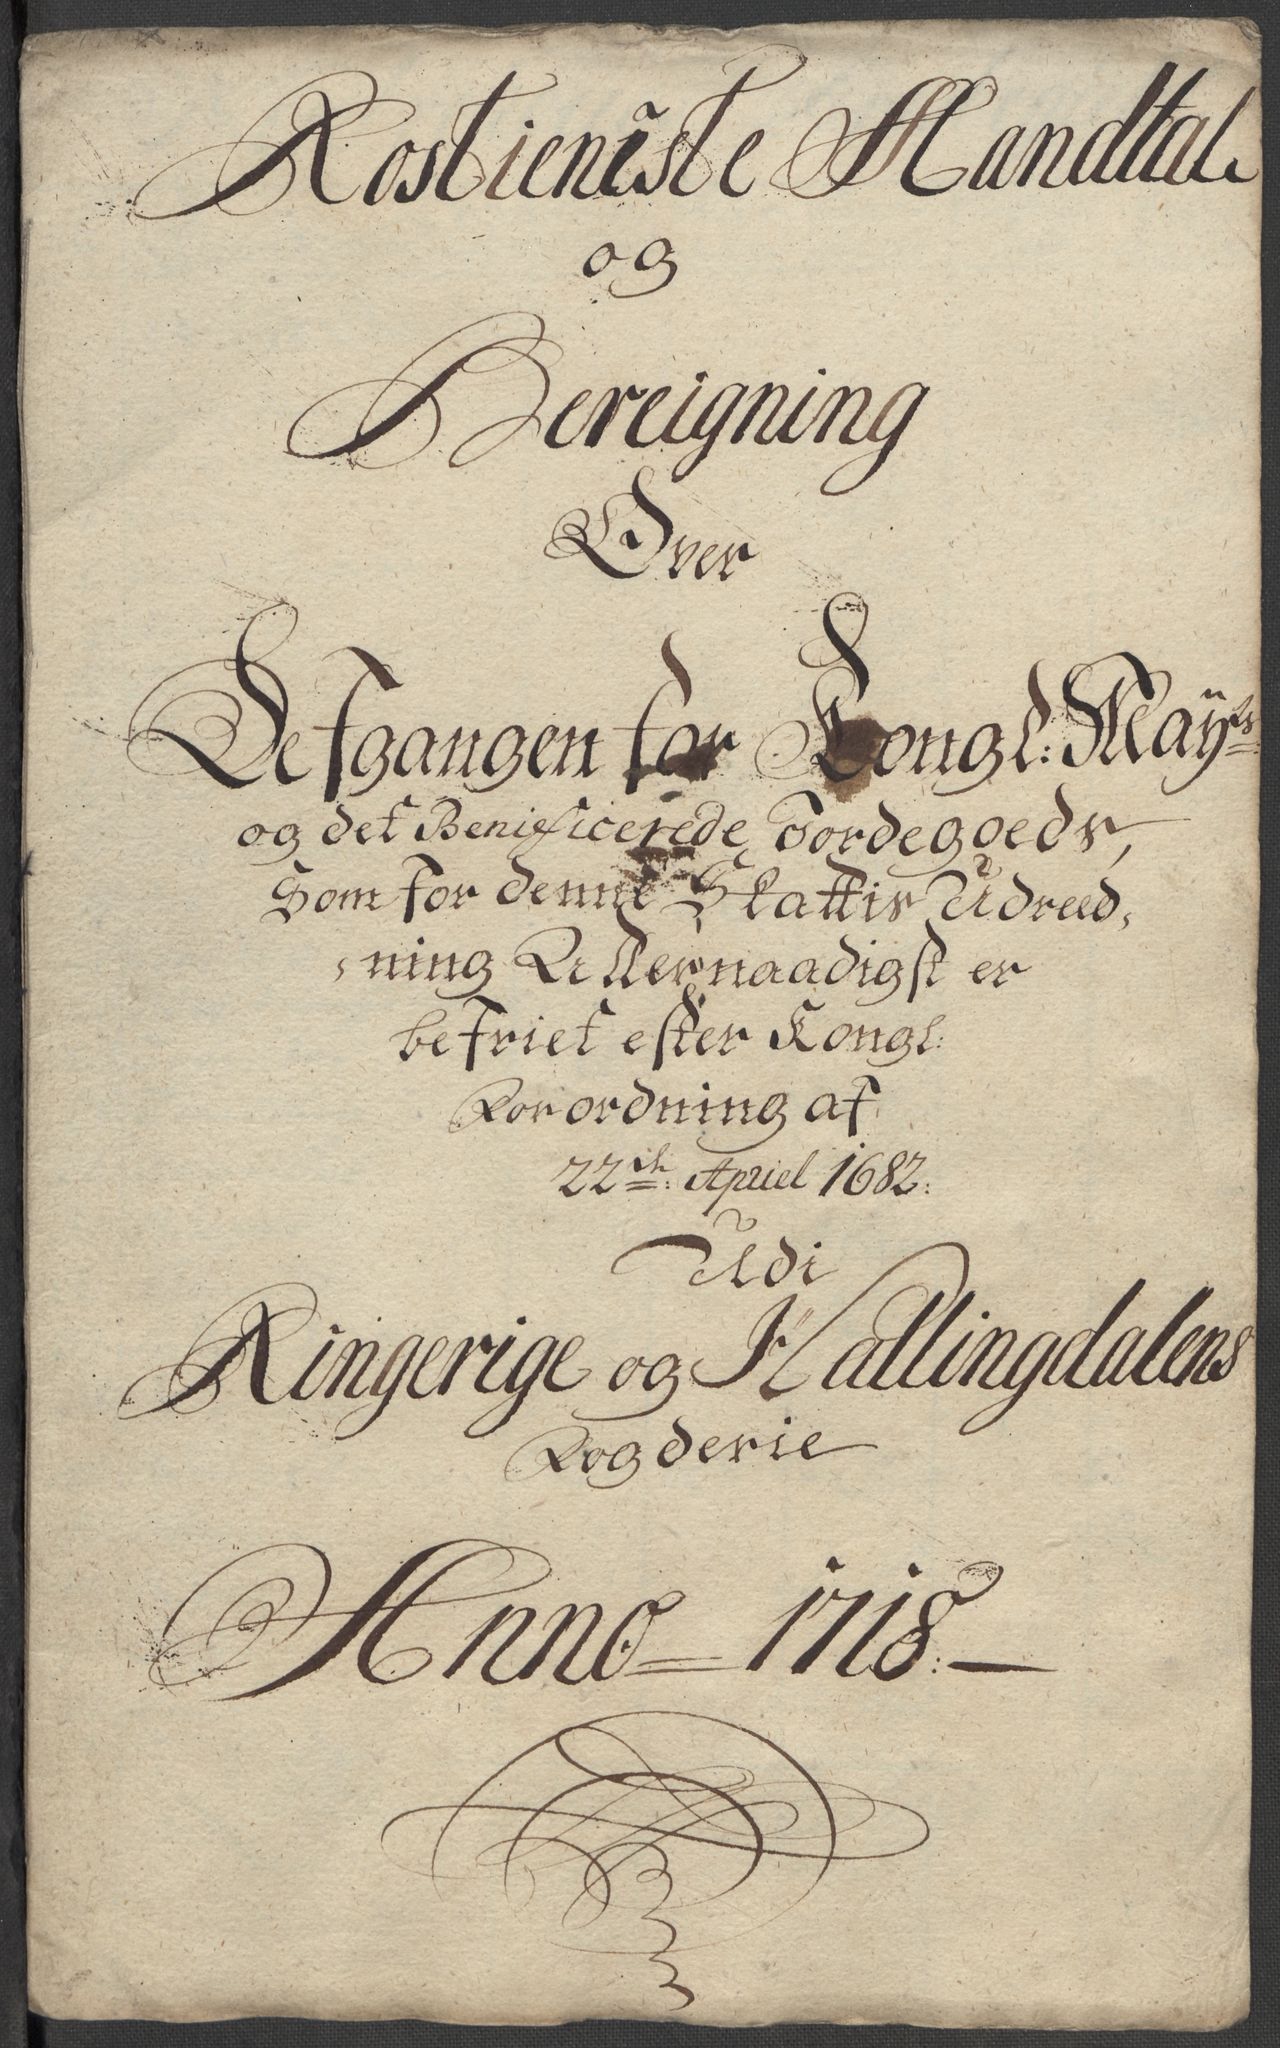 Rostieniste Mandtal
og
Bereigning
Over
Defgangen for Kongl: Mayts
og det Benificerede Jordegoeds,
Som for denne Skattis Udreed,
,ning Allernaadigst er
befriet efter Kongl:
Forordning af
22de: Apriel 1682:
Udi
Ringerige og Hallingdalens
Fogderie
Anno 1718.